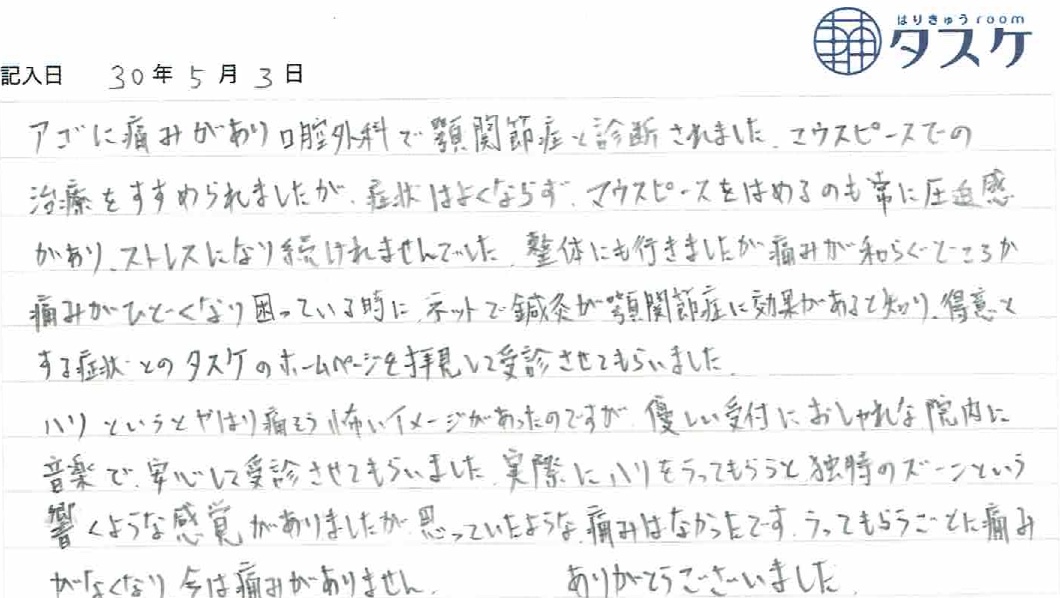 はりきゅうroom
タスケ
記入日 30年5月3日
アゴに痛みがあり口腔外科で顎関節症と診断されました。マウスピースでの
治療をすすめられましたが、症状はよくならず、マウスピースをはめるのも常に圧迫感
があり、ストレスになり続けれませんでした。整体にも行きましたが痛みが和らぐどころか
痛みがひどくなり困っている時に、ネットで鍼灸が顎関節症に効果があると知り、得意と
する症状とのタスケのホームページを拝見して受診させてもらいました。
ハリというとやはり痛そう怖いイメージがあったのですが、優しい受付におしゃれな院内に
音楽で、安心して受診させてもらいました。実際にハリをうってもらうと独特のズーンという
響くような感覚がありましたが、思っていたような痛みはなかったです。うってもらうごとに痛み
がなくなり今は痛みがありません。 ありがとうございました。